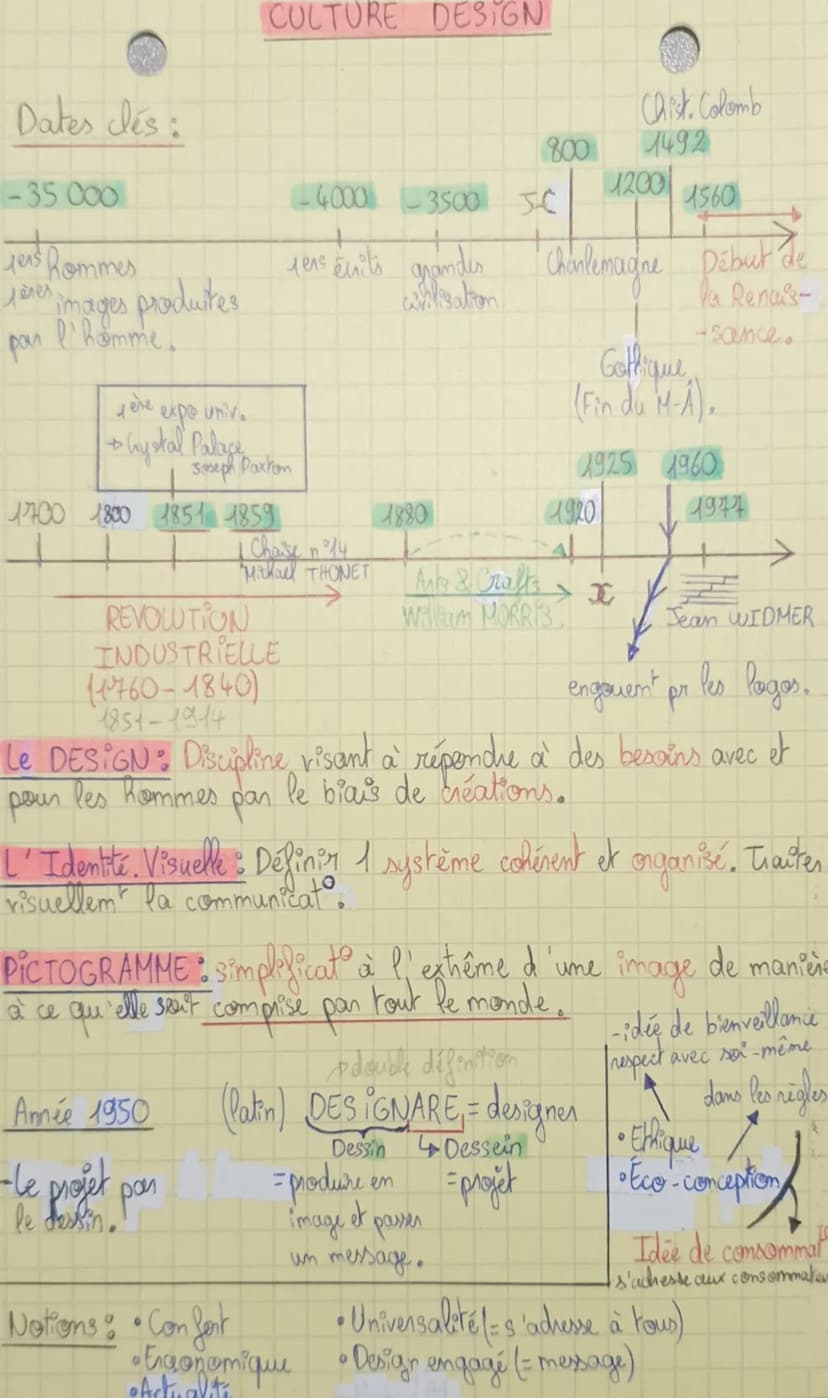 CULTURE DESIGN
Dates clés :
Christ. Colomb
800 1492
-35 000 -4000 -3500 J-C 1200 1560
1ers hommes 1ers écrits grandes Charlemagne Début de
1ères images produites civilisation la Renais-
par l'homme. -sance.
Gothique
(Fin du M-Â).
1ère expo univ.
→ Crystal Palace
Joseph Paxton
1925 1960
1700 1800 1851 1859 1880 1920 1977
Chaise n°14
Mickael THONET Arts & Crafts
William MORRIS
REVOLUTION Jean WIDMER
INDUSTRIELLE
(1760-1840) engouemt pr les logos.
1851-1914
Le DESIGN : Discipline visant à répondre à des besoins avec et
pour les hommes par le biais de créations.
L'Identité Visuelle : Définir 1 système cohérent et organisé. Traiter
visuellemt la communicat°.
PICTOGRAMME : simplificat° à l'extrême d'une image de manière
à ce qu'elle soit comprise par tout le monde.
- idée de bienveillance
respect avec soi-même
→ double définition
dans les règles
Année 1950 (latin) DESIGNARE = designer
Dessin ↳ Dessein
• Ethique
- Le projet par = produire en = projet • Éco-conception
le dessin. image et passer
un message.
Idée de consommat°
s'adresse aux consommateu
Notions : • Confort • Universalité (= s'adresse à tous)
• Ergonomique • Design engagé (= message)
• Actualité